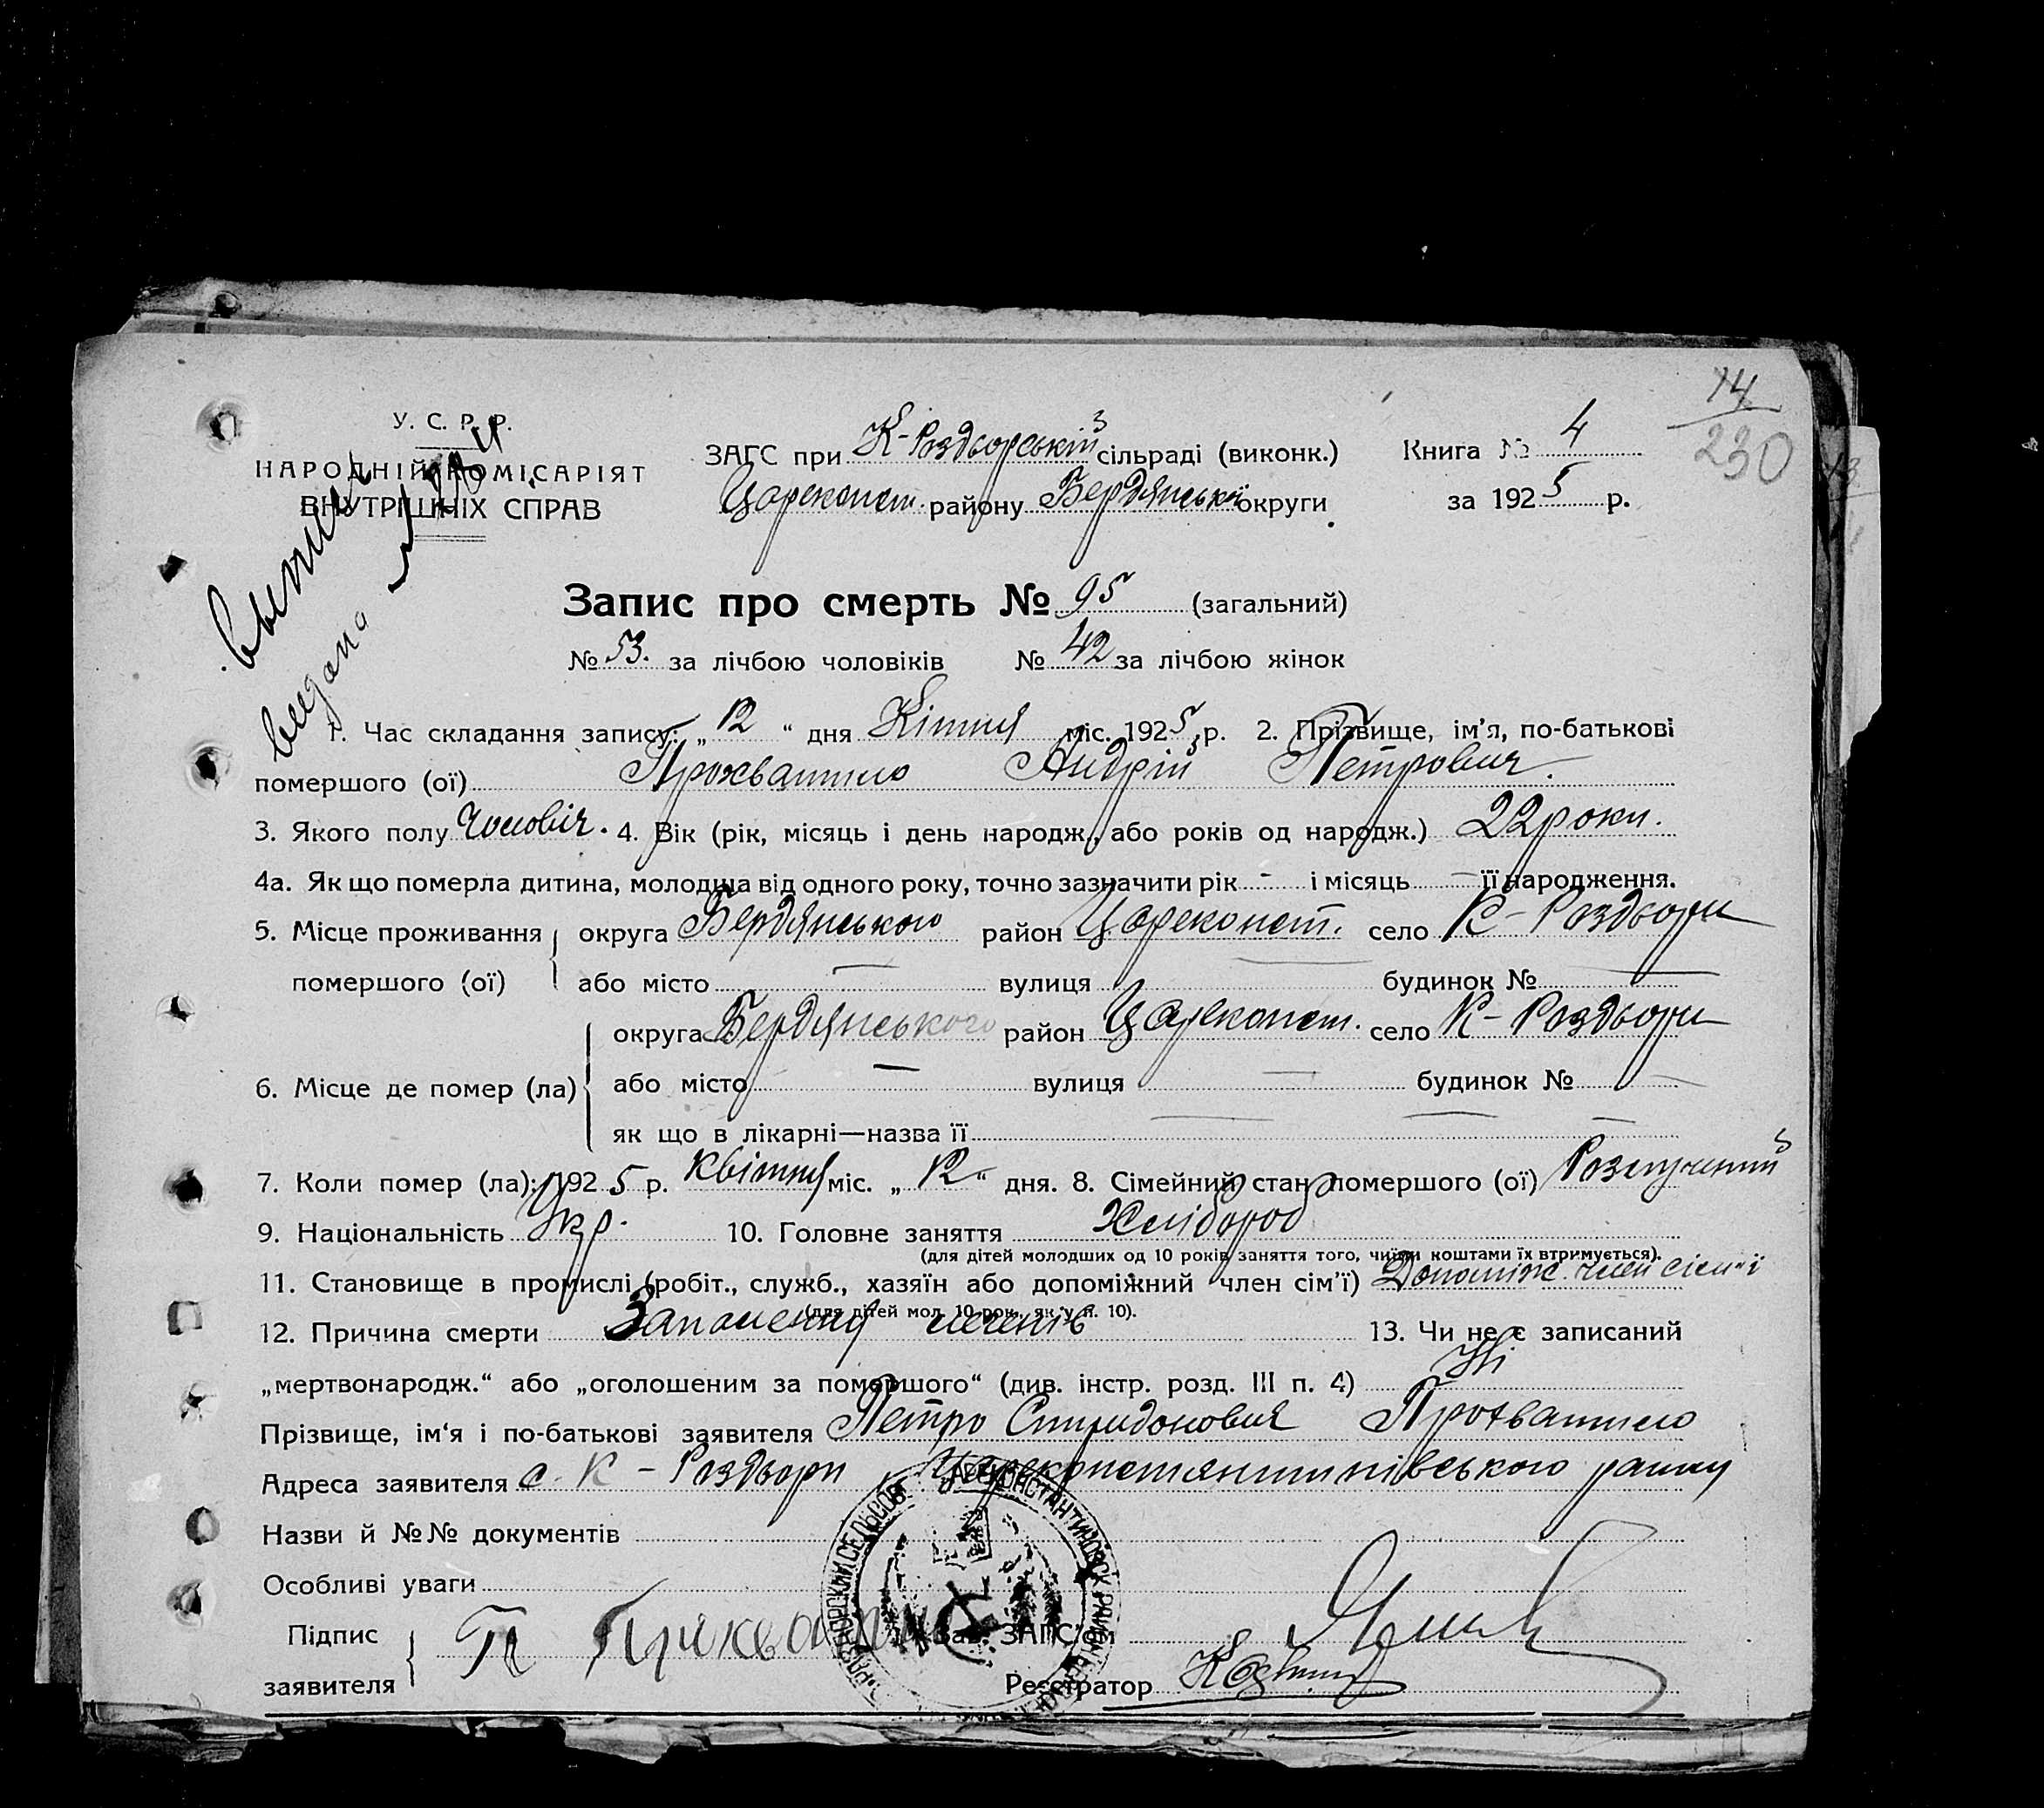 14
230
У. С. Р. Р.
НАРОДНІЙ КОМІСАРІЯТ
ВНУТРІШНІХ СПРАВ
ЗАГС при К-Роздьорській сільраді (виконк.) Книга № 4
Цареконст. району Бердянської округи за 1925 р.
Запис про смерть № 95 (загальний)
№ 53. за лічбою чоловіків № 42 за лічбою жінок
выдана
1. Час складання запису: „12“ дня Квітня міс. 1925 р. 2. Прізвище, ім’я, по-батькові
помершого (ої) Прохватило Андрій Петрович.
3. Якого полу Чоловіч. 4. Вік (рік, місяць і день народж., або років од народж.) 22 роки.
4а. Як що померла дитина, молодша від одного року, точно зазначити рік - і місяць - її народження.
5. Місце проживання округа Бердянського район Цареконст. село К-Роздьори
помершого (ої) або місто — вулиця — будинок № —
округа Бердянського район Цареконст. село К-Роздьори
6. Місце де помер (ла) або місто — вулиця — будинок № —
як що в лікарні—назва її — — —
7. Коли помер (ла): 1925 р. квітня міс. „12“ дня. 8. Сімейний стан помершого (ої) Розлучений
9. Національність Укр. 10. Головне заняття Хлібороб
(для дітей молодших од 10 років, заняття того, чиїми коштами їх втримується).
11. Становище в промислі (робіт., служб., хазяїн або допоміжний член сім’ї) Допоміж. член сім"ї
(для дітей мол. 10 рок., як у п. 10).
12. Причина смерти Запалення легенів 13. Чи не є записаний
„мертвонародж.“ або „оголошеним за помершого“ (див. інстр. розд. III п. 4) Ні
Прізвище, ім‘я і по-батькові заявителя Петро Спиридонович Прохватило
Адреса заявителя с. К-Роздьори Цареконстянтинівського району
Назви й №№ документів
Особливі уваги
Підпис
заявителя П Прохватило
Зав. ЗАГС’ом
Реєстратор